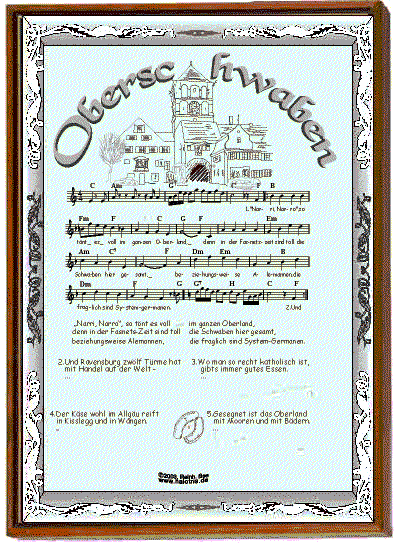 Obersc hwaben
C Am G C F B
1."Nar- ri, Narro",so
Fm F C G F Em
tönt_ es_ voll im gan-zen O-ber-land,_ denn in der Fas-nets-zeit sind toll die
Am C F Dm Em B
Schwaben hier ge- samt,_ be- zie-hungs-wei- se A- le-mannen,die
Dm F G G7 H C F
frag-lich sind Sy-stem-ger-manen. 2.Und
„Narri, Narro“, so tönt es voll im ganzen Oberland,
denn in der Fasnets-Zeit sind toll die Schwaben hier gesamt,
beziehungsweise Alemannen, die fraglich sind System-Germanen.
2.Und Ravensburg zwölf Türme hat
mit Handel auf der Welt -
...
3.Wo man so recht katholisch ist,
gibts immer gutes Essen.
...
4.Der Käse wohl im Allgäu reift
in Kisslegg und in Wangen.
..
5.Gesegnet ist das Oberland
mit Mooren und mit Bädern.
...
©2009, Reinh. See
www.halotria.de